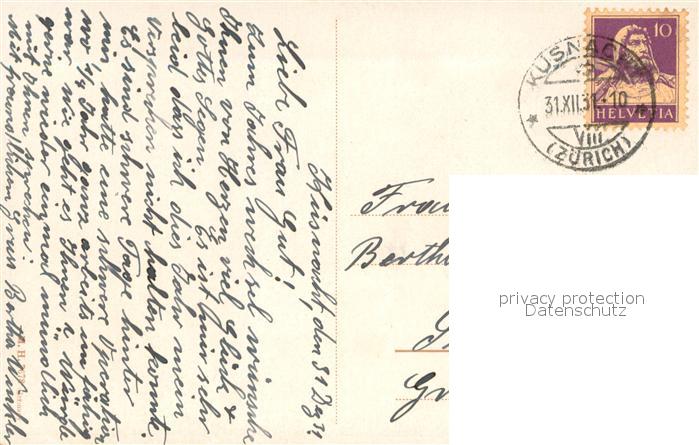 Küsnacht, den 31 Dez. 31
Liebe Frau Gut!
Zum Jahreswechsel wünsche
Ihnen von Herzen viel Glück &
Gottes Segen. Es ist mir sehr
leid dass ich dies Jahr mein
Versprechen nicht halten konnte.
Es sind schwere Tage hinter
mir hatte eine schwere Operation
war 1/4 Jahr ganz arbeitsunfähig
wie geht es Ihnen
gerne wieder einmal mündlich
mit Ihnen
Mit freundlichem Gruss Bertha
KÜSNACHT
31.XII.31.-10
VIII
(ZÜRICH)
10
HELVETIA
Frau
Bertha
privacy protection
Datenschutz